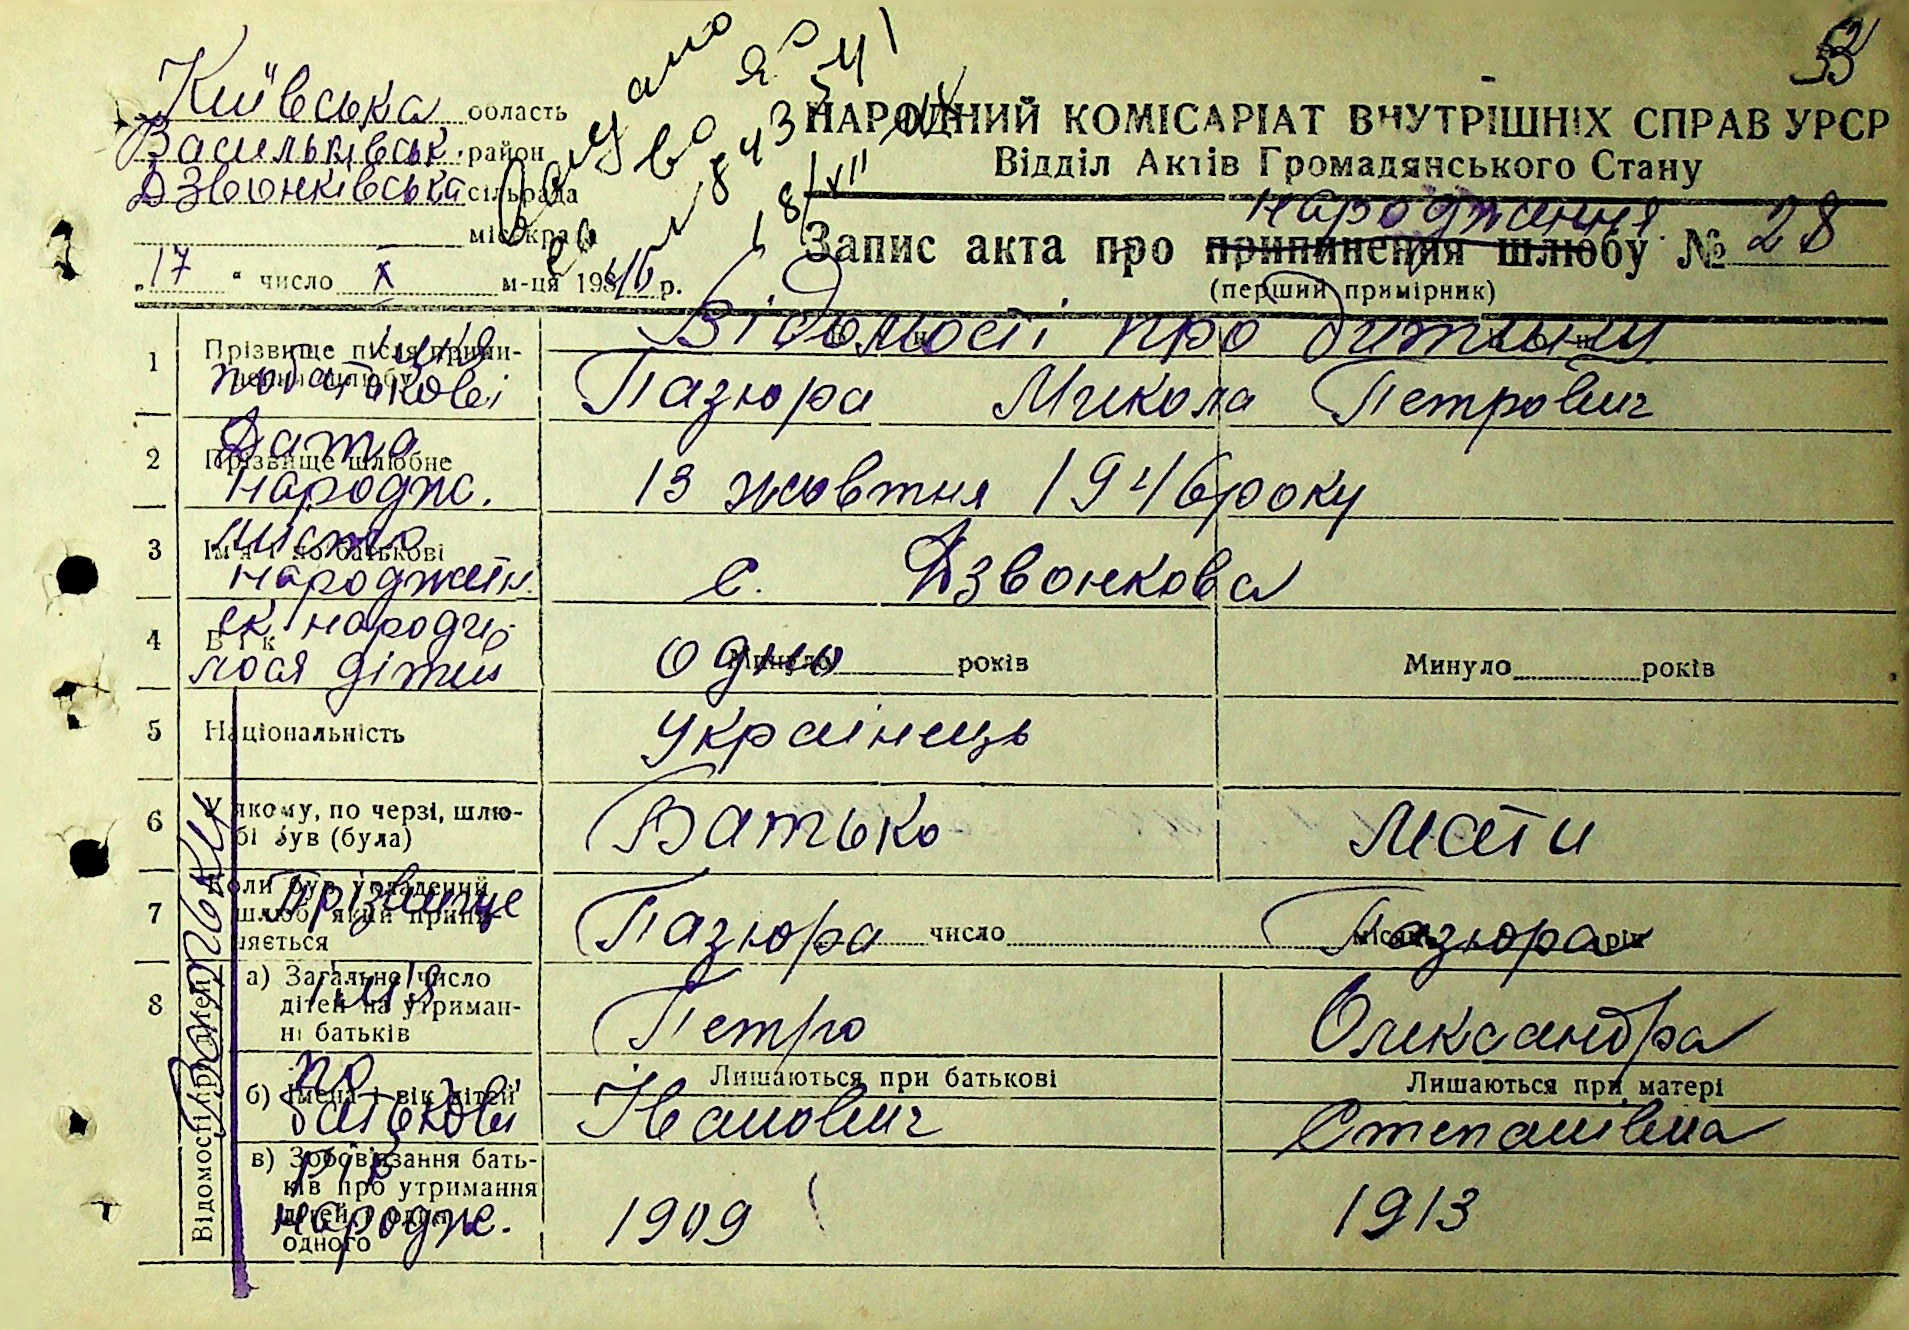 Київська область
Васильківськ. район
Дзвонківська сільрада
міськрада
"17" число X м-ця 1946 р.
НАРОДНИЙ КОМІСАРІАТ ВНУТРІШНІХ СПРАВ УРСР
Відділ Актів Громадянського Стану
народження
Запис акта про припинення шлюбу № 28
(перший примірник)
Відомості про дитину
1 Прізвище після припинення шлюбу
імя побатькові
Пазюра Микола Петрович
2 Прізвище шлюбне
Дата народж.
13 жовтня 1946 року
3 Ім'я і по батькові
місто народжен.
с. Дзвонкова
4 Вік
як народилося дітей
одно
Минуло років Минуло років
5 Національність
українець
6 У якому, по черзі, шлюбі був (була)
Батько Мати
7 Коли був укладений шлюб, який припиняється
Прізвище
число місяць рік
Пазюра Пазюра
8 а) Загальне число дітей на утриманні батьків
імя
Петро Олександра
Лишаються при батькові Лишаються при матері
б) Імена і вік дітей
по батькові
Іванович Степанівна
в) Зобов'язання батьків про утримання
одного
рік народж.
1909 1913
Відомості про